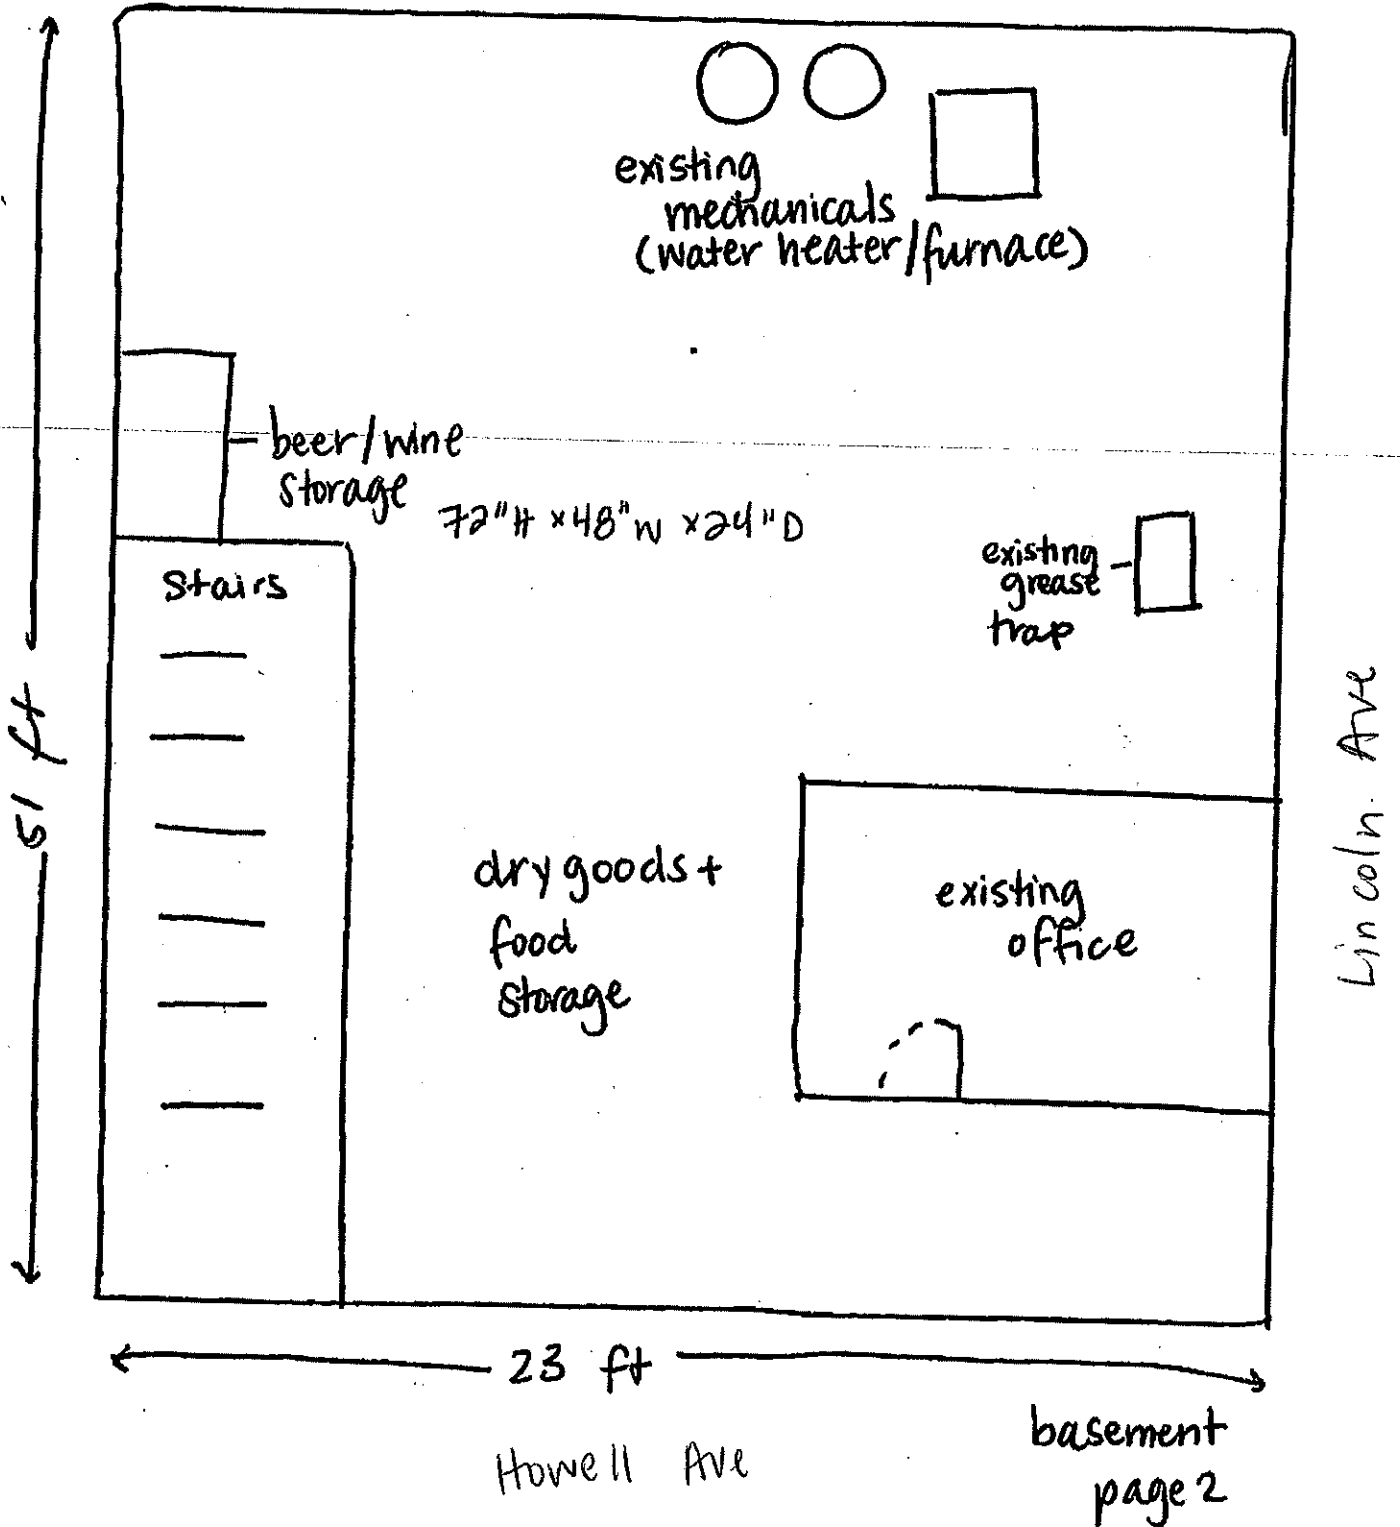 existing
mechanicals
(water heater/furnace)
beer/wine
storage
72"H x48"W x24"D
existing
grease
trap
Stairs
51 ft
Lincoln Ave
dry goods +
food
storage
existing
office
23 ft
Howell Ave
basement
page 2